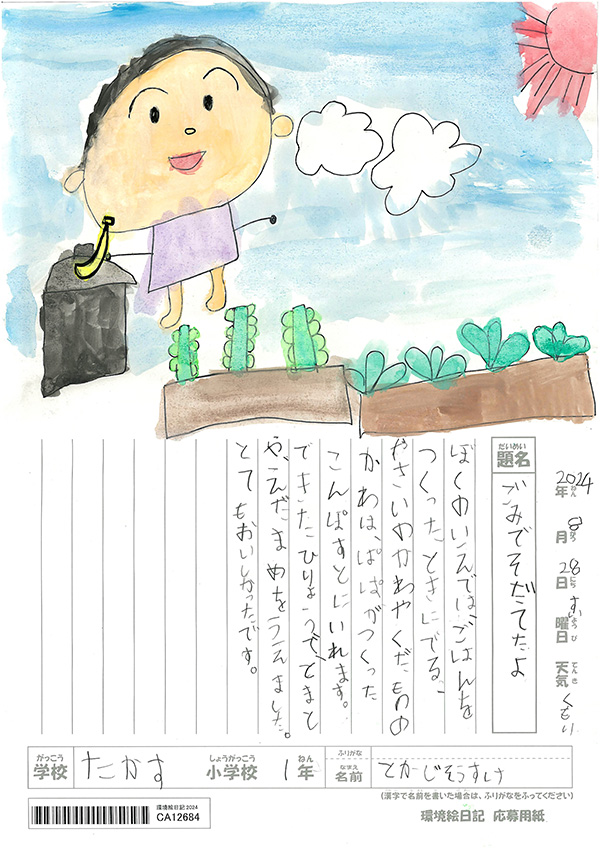 2024年ねん 8月がつ 28日にち すい曜日ようび 天気てんき くもり
題名だいめい ごみでそだてたよ
ぼくのいえでは、ごはんを
つくったときにでる、
やさいのかわやくだもの
かわは、ぱぱがつくった
こんぽすとにいれます。
できたひりょうで、とまと
や、えだまめをうえました。
とてもおいしかったです。
学校がっこう たかす 小学校しょうがっこう 1年ねん
ふりがな
名前なまえ とかじそうすけ
(漢字で名前を書いた場合は、ふりがなをふってください)
環境絵日記2024
CA12684
環境絵日記 応募用紙